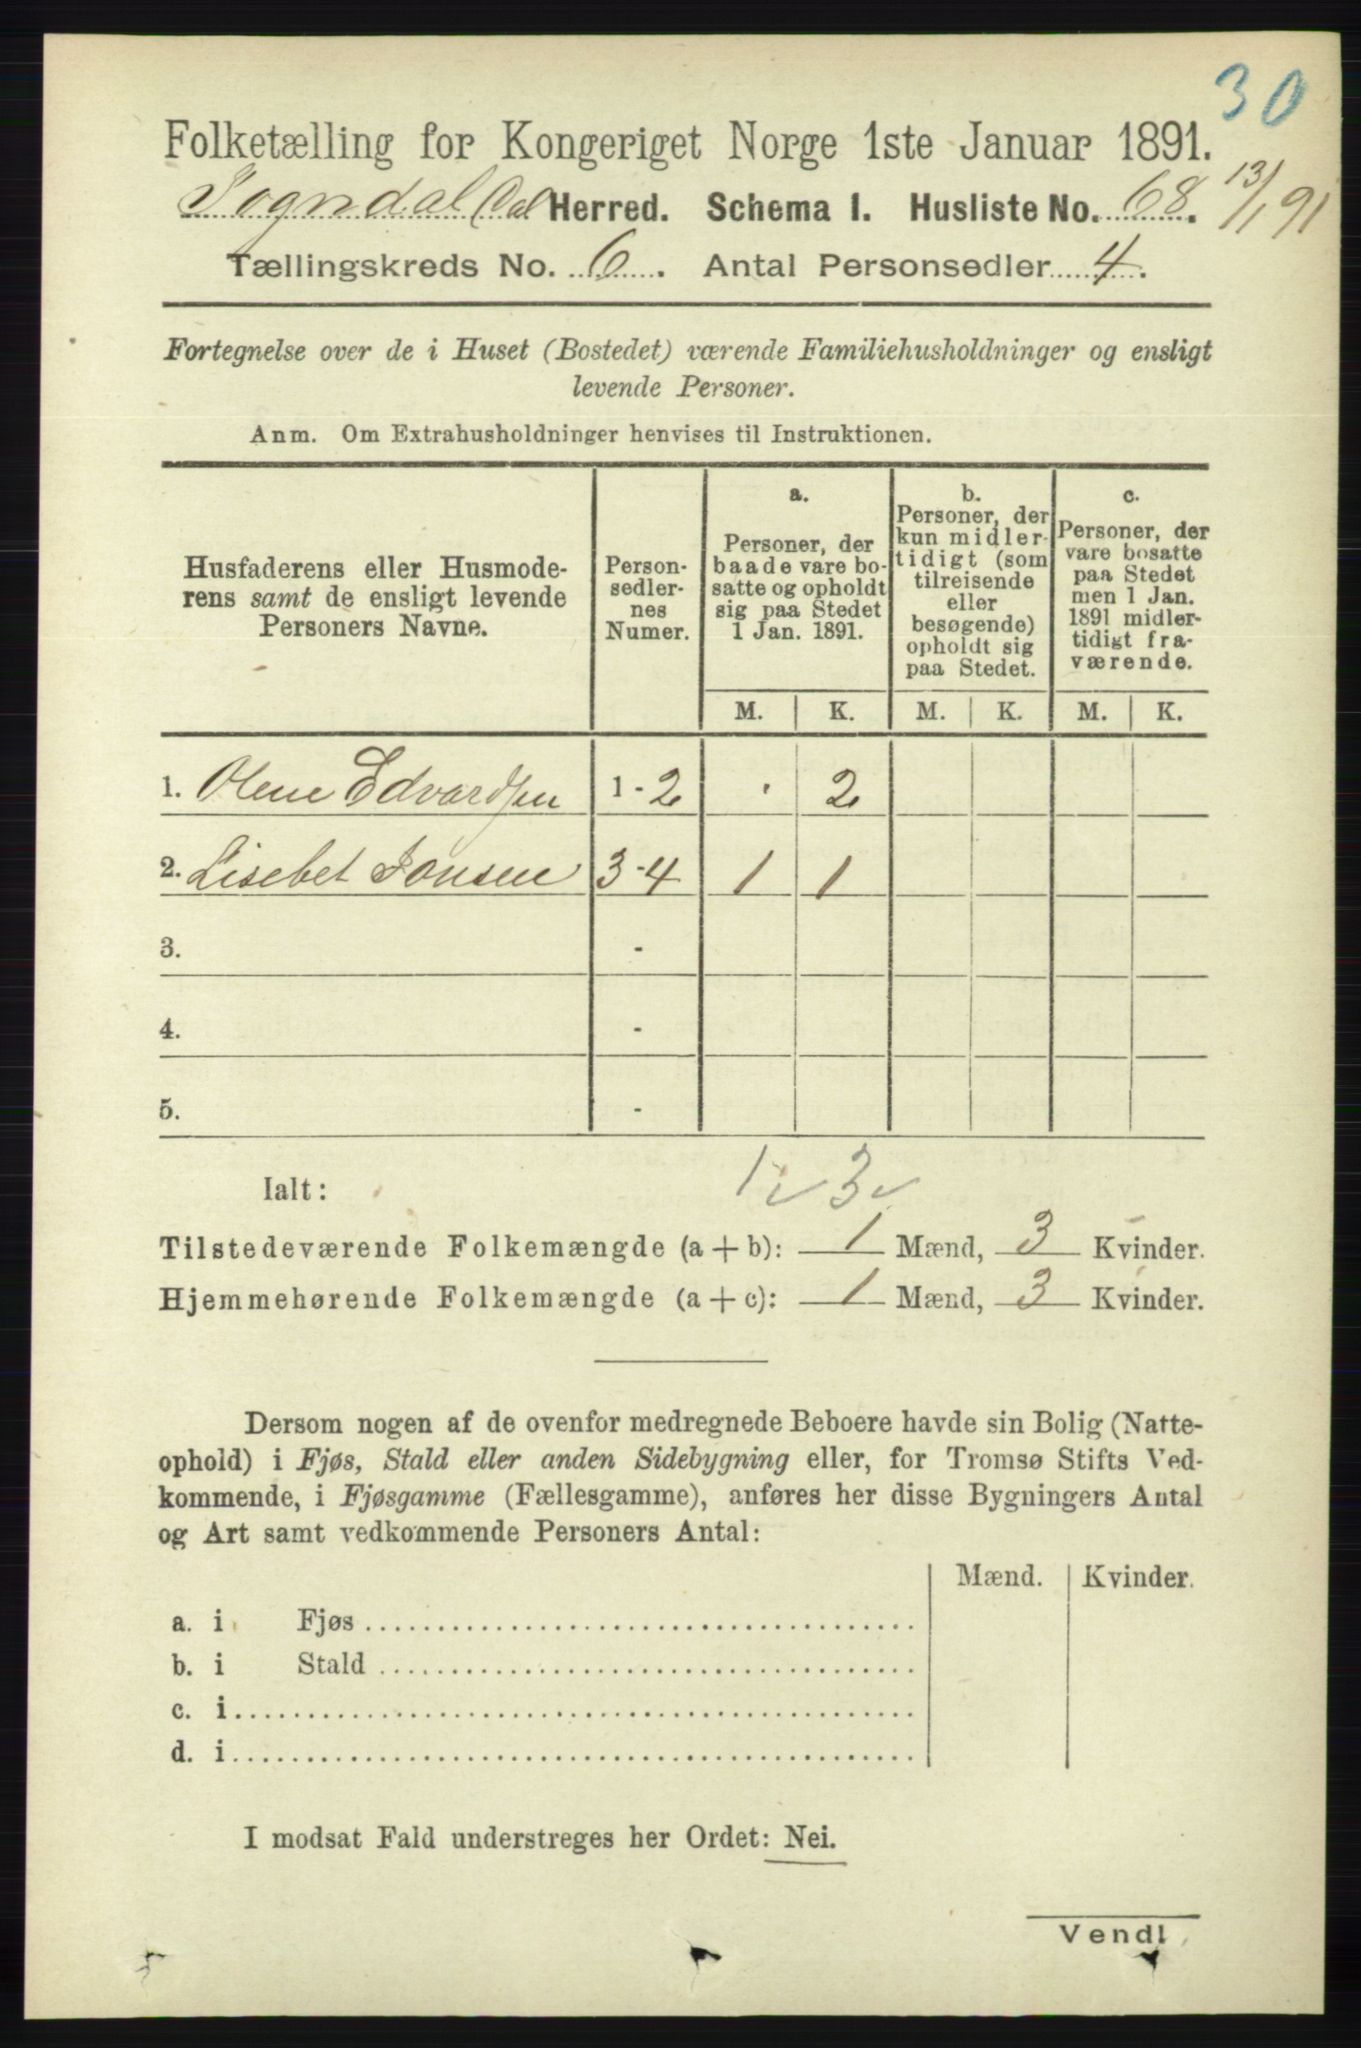 30
Folketælling for Kongeriget Norge 1ste Januar 1891.
Sogndal Herred. Schema I. Husliste No. 68. 13/1 91
Tællingskreds No. 6. Antal Personsedler 4.
Fortegnelse over de i Huset (Bostedet) værende Familiehusholdninger og ensligt
levende Personer.
Anm. Om Extrahusholdninger henvises til Instruktionen.
Husfaderens eller Husmode-
rens samt de ensligt levende
Personers Navne.
Person-
sedler-
nes
Numer.
a.
Personer, der
baade vare bo-
satte og opholdt
sig paa Stedet
1 Jan. 1891.
b.
Personer, der
kun midler-
tidigt (som
tilreisende
eller
besøgende)
opholdt sig
paa Stedet.
c.
Personer, der
vare bosatte
paa Stedet
men 1 Jan.
1891 midler-
tidigt fra-
værende.
M. K. M. K. M. K.
1. Olene Edvardsen 1-2 2
2. Lisebet Jonsen 3-4 1 1
3. -
4. -
5. -
Ialt: 1 3
Tilstedeværende Folkemængde (a + b): 1 Mænd, 3 Kvinder.
Hjemmehørende Folkemængde (a + c): 1 Mænd, 3 Kvinder.
Dersom nogen af de ovenfor medregnede Beboere havde sin Bolig (Natte-
ophold) i Fjøs, Stald eller anden Sidebygning eller, for Tromsø Stifts Ved-
kommende, i Fjøsgamme (Fællesgamme), anføres her disse Bygningers Antal
og Art samt vedkommende Personers Antal:
Mænd. Kvinder.
a. i Fjøs
b. i Stald
c. i
d. i
I modsat Fald understreges her Ordet: Nei.
Vend!